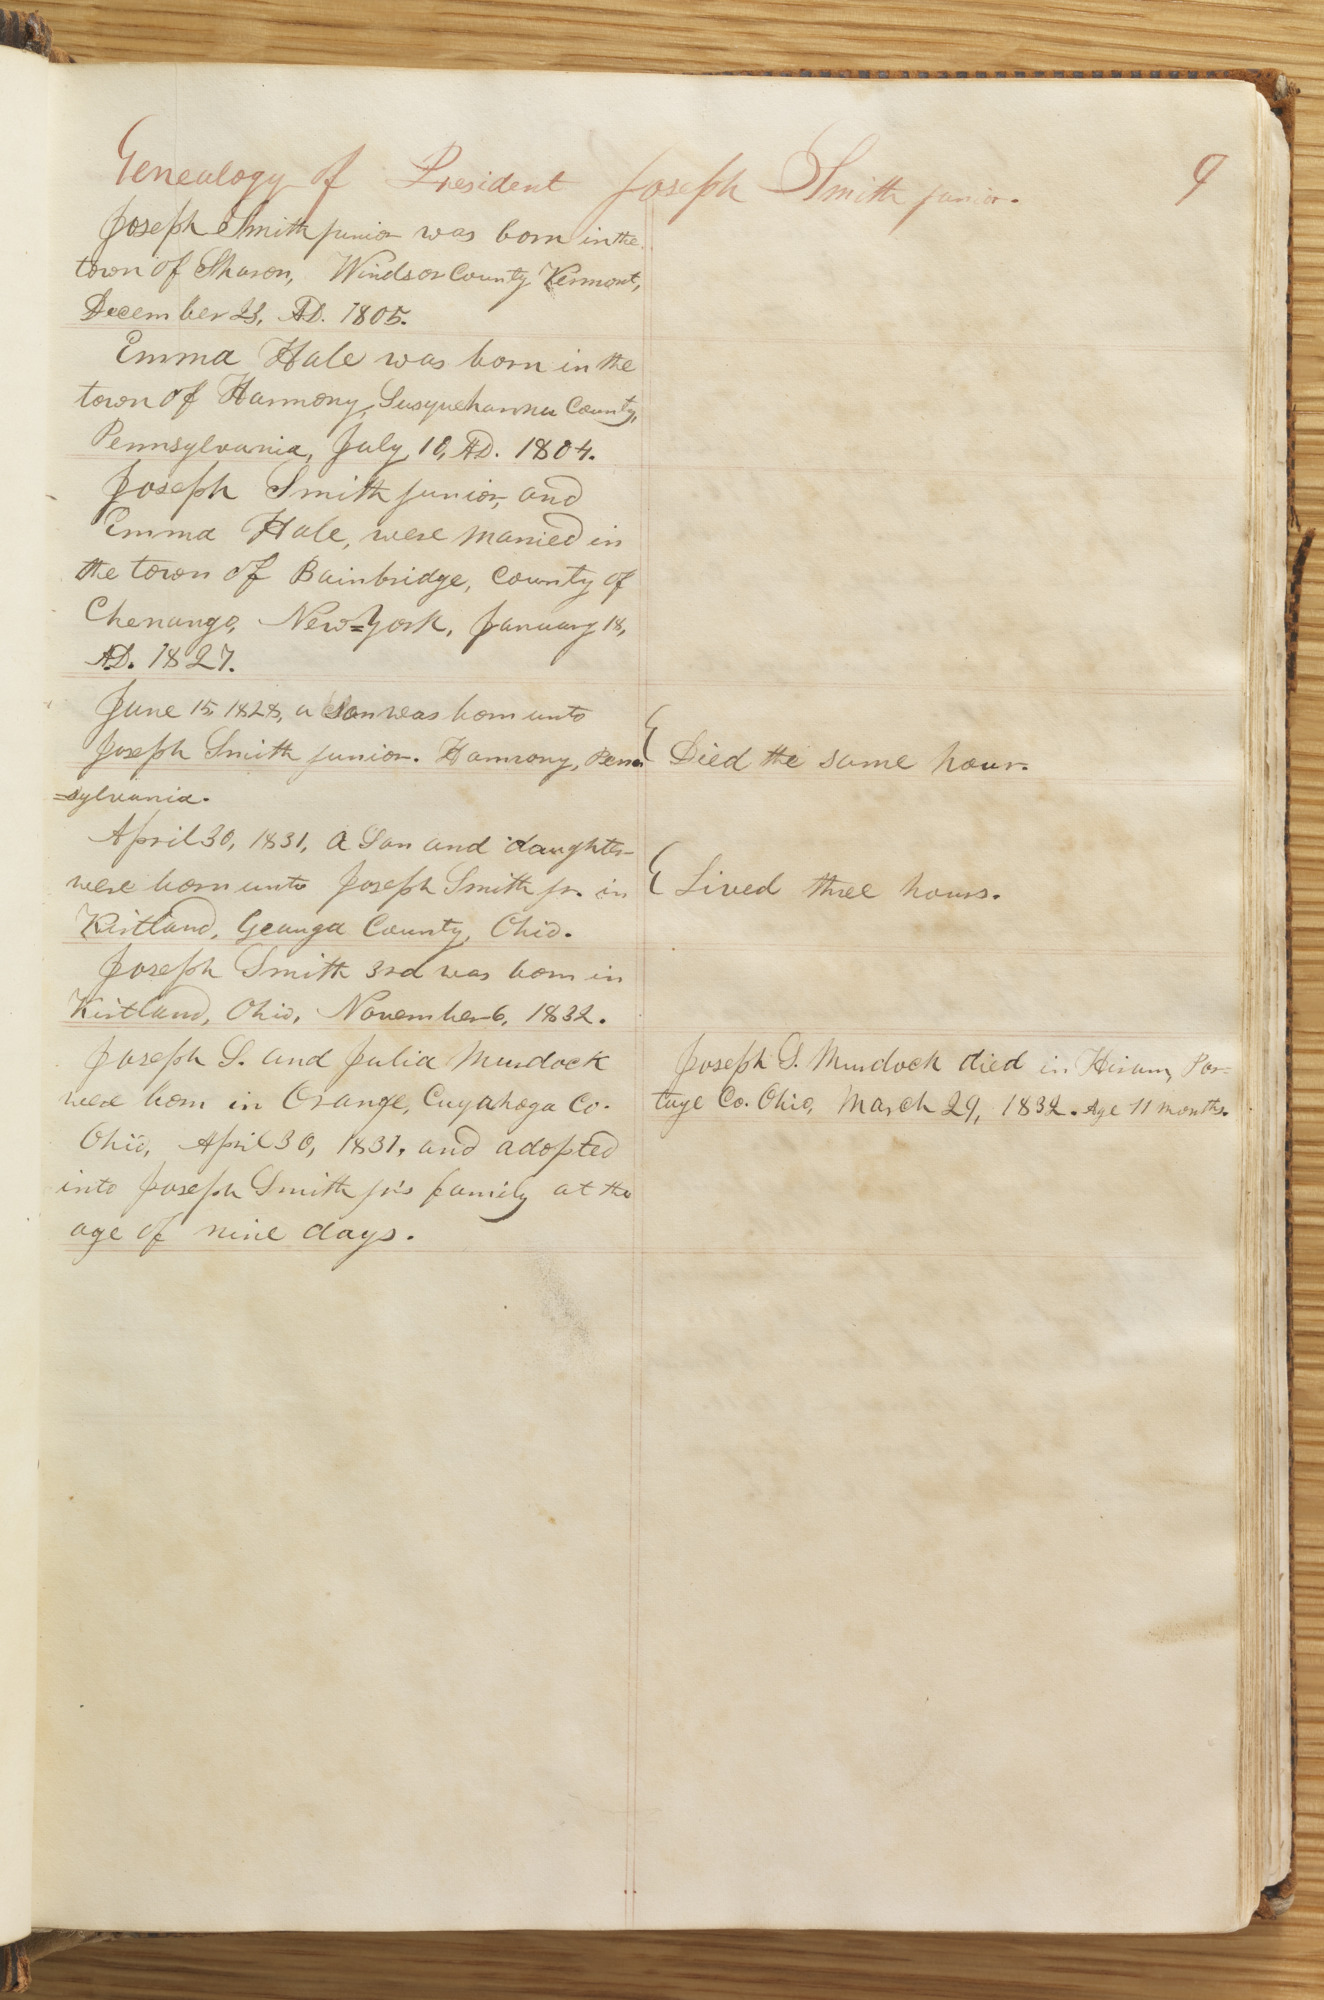 Genealogy of President Joseph Smith junior. 9
Joseph Smith junior was born in the
town of Sharon, Windsor County Vermont,
December 23, AD. 1805.
Emma Hale was born in the
town of Harmony, Susquehanna County,
Pennsylvania, July 10, AD. 1804.
Joseph Smith junior, and
Emma Hale, were married in
the town of Bainbridge, County of
Chenango, New=York, January 18,
AD. 1827.
June 15, 1828, a Son was born unto
Joseph Smith junior. Harmony, Penn
=sylvania.
{ Died the same hour.
April 30, 1831, a Son and daughter
were born unto Joseph Smith jr. in
Kirtland, Geauga County, Ohio.
{ Lived three hours.
Joseph Smith 3rd was born in
Kirtland, Ohio, November 6, 1832.
Joseph S. and Julia Murdock
were born in Orange, Cuyahoga Co.
Ohio, April 30, 1831, and adopted
into Joseph Smith jr's family at the
age of nine days.
Joseph S. Murdock died in Hiram, Por=
tage Co. Ohio, March 29, 1832. Age 11 months.